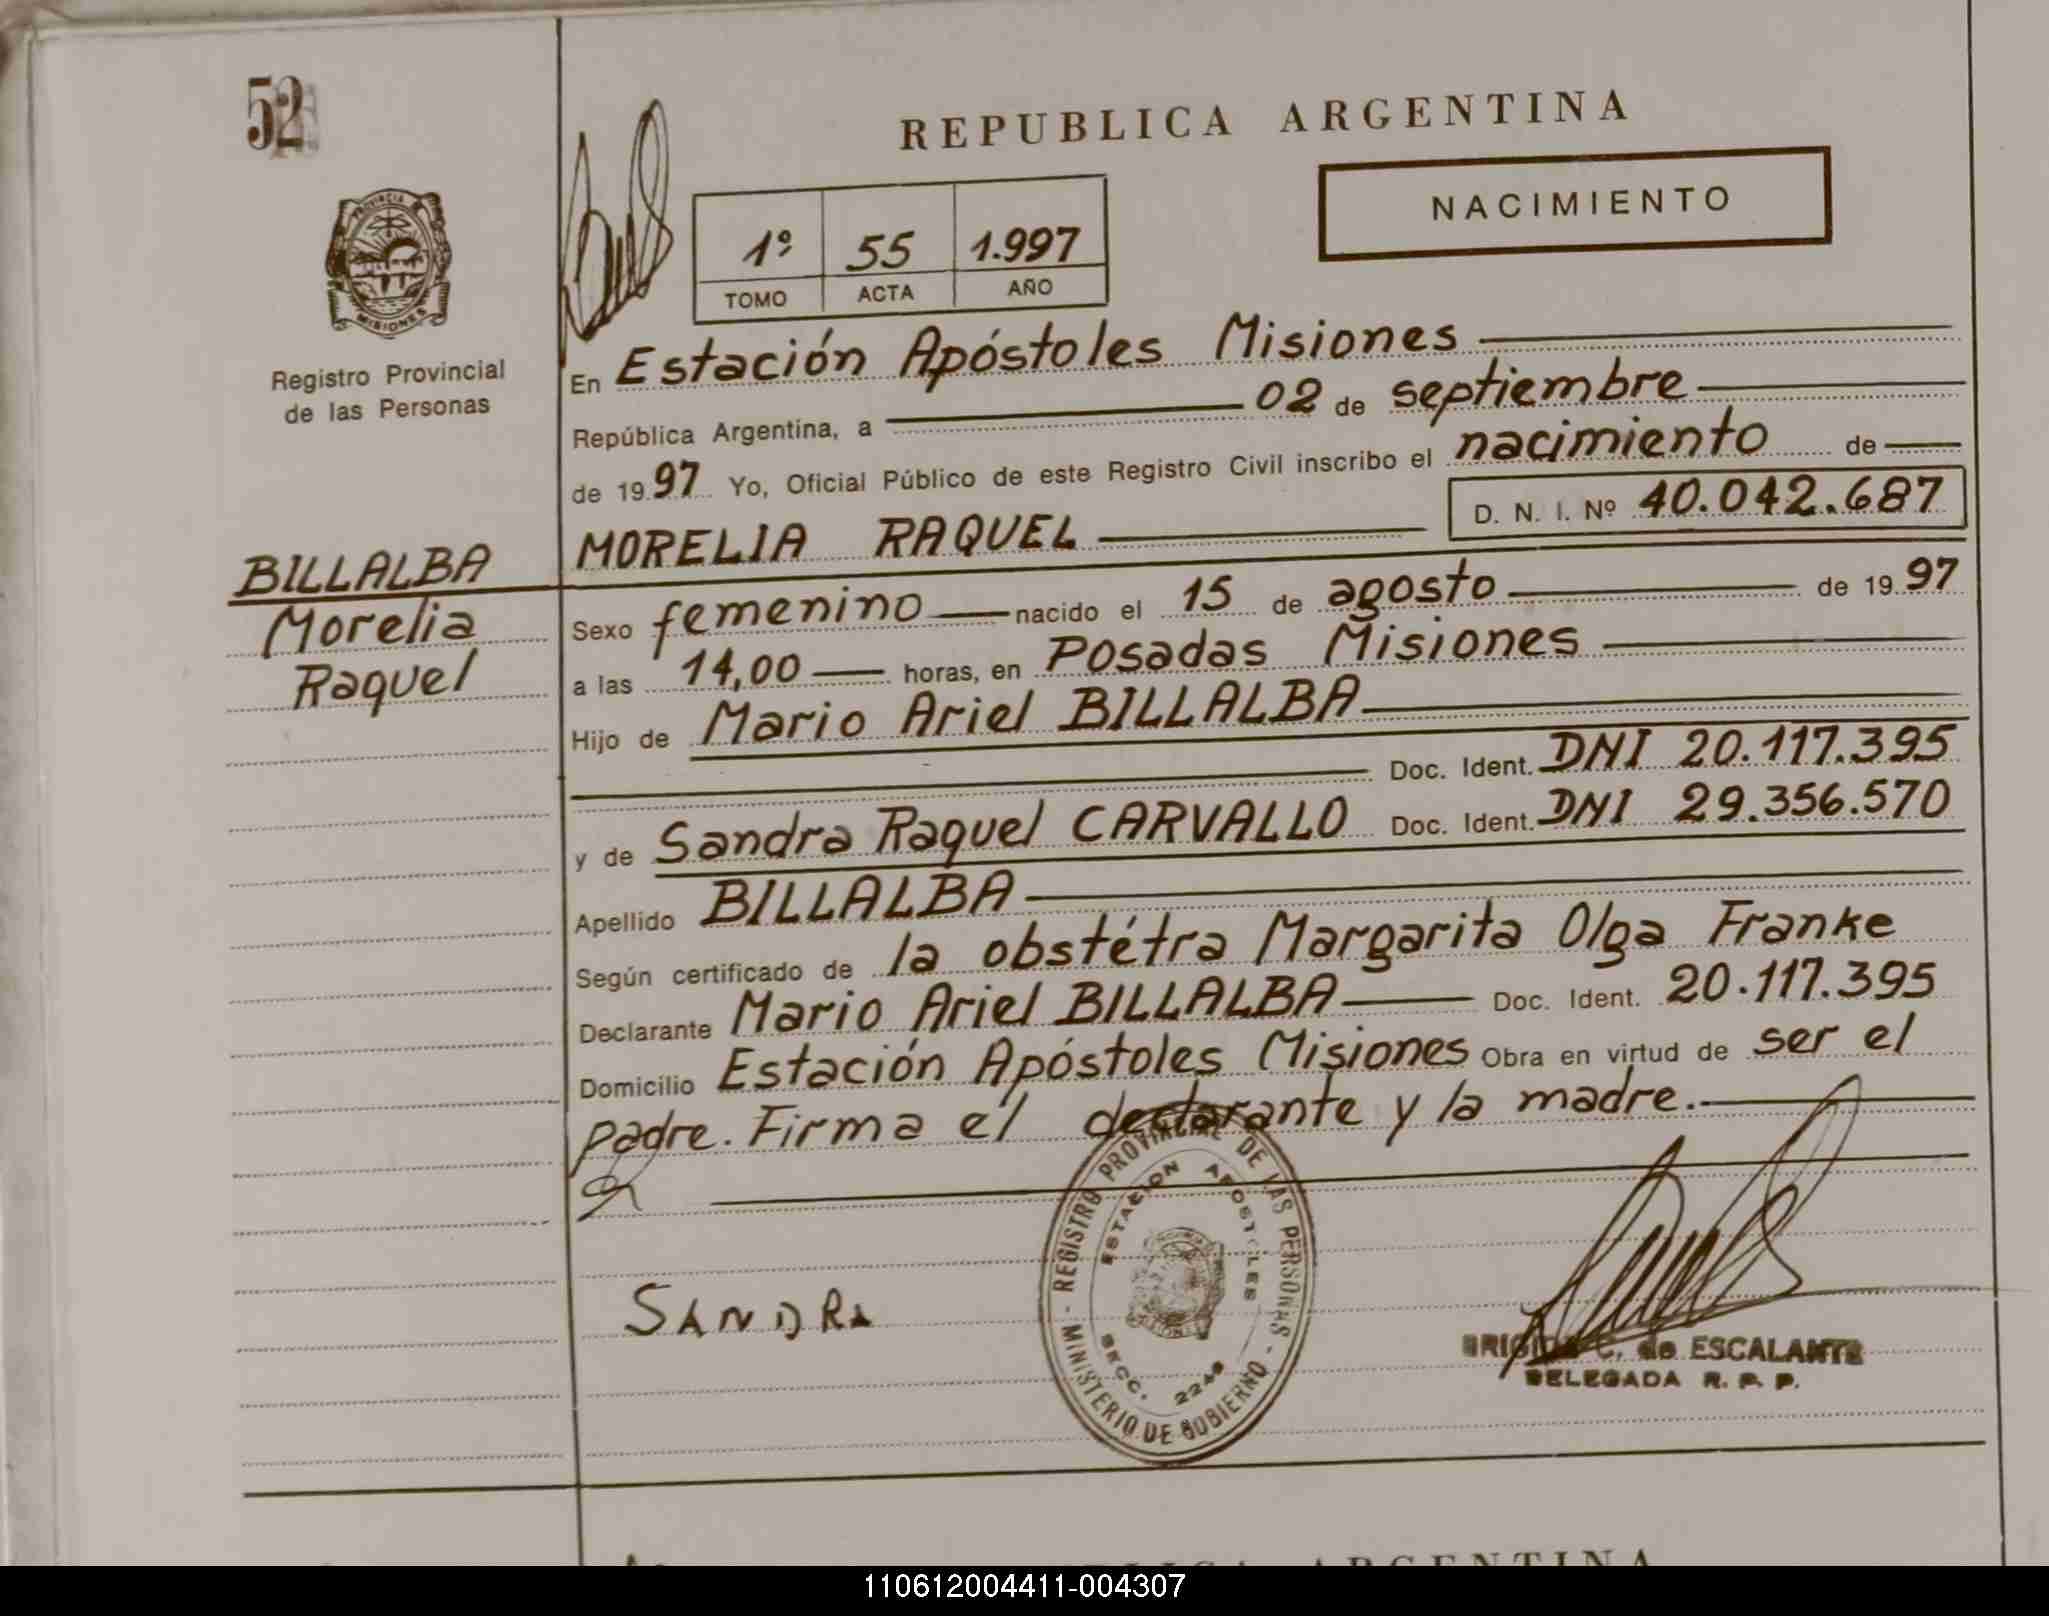 52
REPUBLICA ARGENTINA
NACIMIENTO
1º 55 1.997
TOMO ACTA AÑO
PROVINCIA
MISIONES
Registro Provincial
de las Personas
BILLALBA
Morelia
Raquel
En Estación Apóstoles Misiones
República Argentina, a 02 de septiembre
de 1997 Yo, Oficial Público de este Registro Civil inscribo el nacimiento de
D. N. I. Nº 40.042.687
MORELIA RAQUEL
Sexo femenino nacido el 15 de agosto de 1997
a las 14,00 horas, en Posadas Misiones
Hijo de Mario Ariel BILLALBA
Doc. Ident. DNI 20.117.395
y de Sandra Raquel CARVALLO Doc. Ident. DNI 29.356.570
Apellido BILLALBA
Según certificado de la obstétra Margarita Olga Franke
Declarante Mario Ariel BILLALBA Doc. Ident. 20.117.395
Domicilio Estación Apóstoles Misiones Obra en virtud de ser el
padre. Firma el declarante y la madre.
REGISTRO PROVINCIAL DE LAS PERSONAS - MINISTERIO DE GOBIERNO -
ESTACION APOSTOLES
SECC. 2249
SANDRA
C. de ESCALANTE
DELEGADA R. P. P.
REPUBLICA ARGENTINA
110612004411-004307